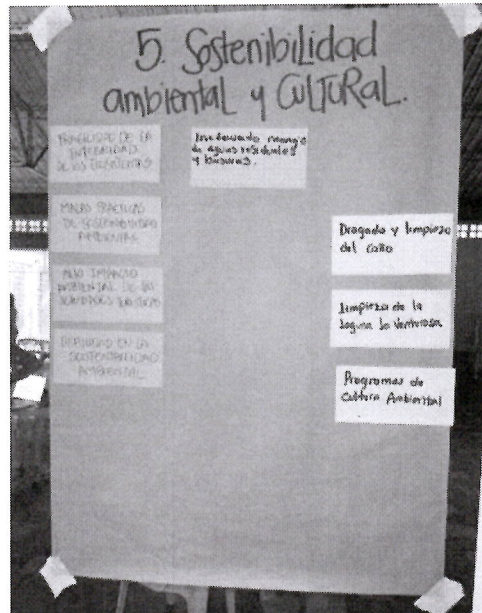 5. Sostenibilidad
ambiental y CULTURAL.
FRAGILIDAD DE LA
INTEGRALIDAD
DE LOS ECOSISTEMAS
MALAS PRACTICAS
DE SOSTENIBILIDAD
AMBIENTAL
ALTO IMPACTO
AMBIENTAL DE LA
DEBILIDAD EN LA
SOSTENIBILIDAD
AMBIENTAL
Inadecuado manejo
de aguas residuales
y basuras.
Dragado y limpieza
del caño
Limpieza de la
laguna la Ventorosa
Programas de
Cultura Ambiental